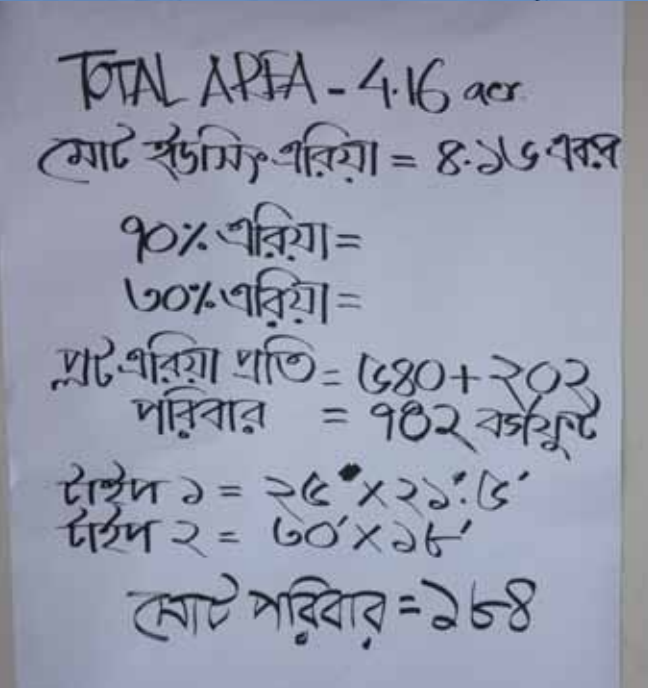 TOTAL AREA - 4.16 acr.
মোট হাউসিং এরিয়া = ৪.১৬ একর
৭০% এরিয়া =
৩০% এরিয়া =
প্লট এরিয়া প্রতি = ৫৪০+২০২
পরিবার = ৭৪২ বর্গফুট
টাইপ ১ = ২৫' X ২১'.৫'
টাইপ ২ = ৩০' X ১৮'
মোট পরিবার = ১৮৪